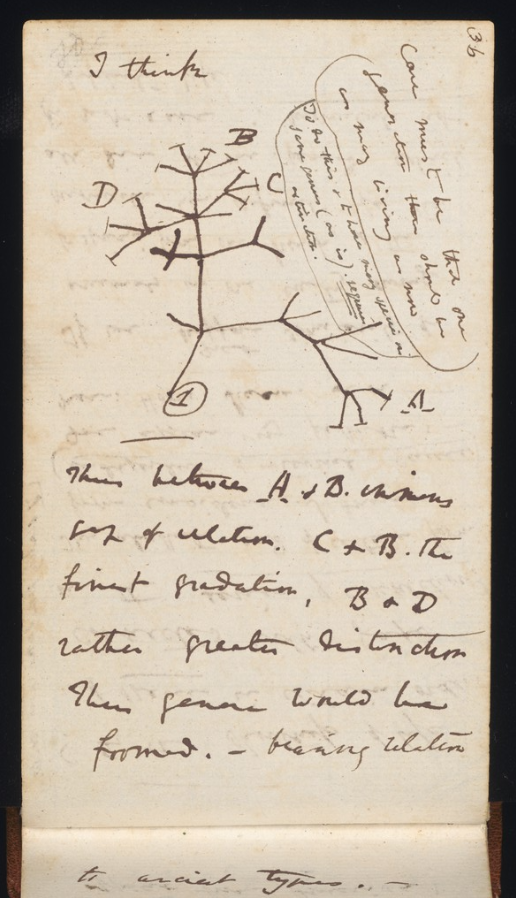 36
I think
Case must be that one
generation then should be
as many living as now
To do this & to have many species in
same genus (as is). requires
extinction.
B
C
D
A
1
Thus between A. & B. immens
gap of relation. C & B. the
finest gradation, B & D
rather greater distinction
Thus genera would be
formed. — bearing relation
to ancient types. —